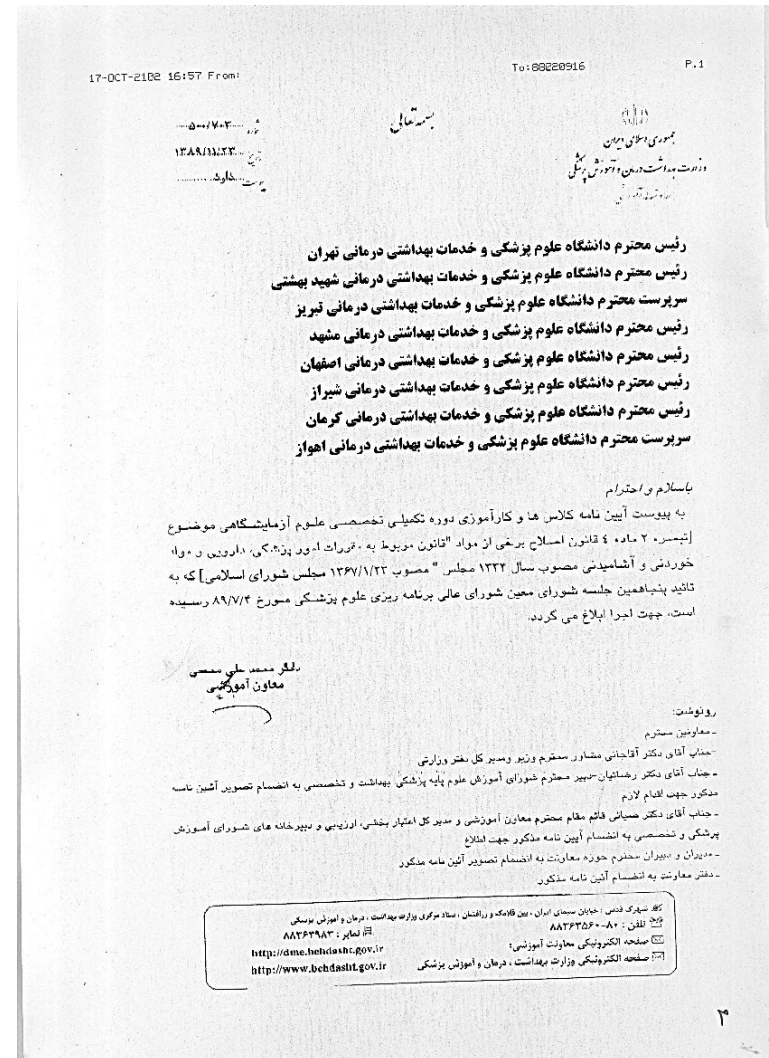 17-OCT-2102 16:57 From: To:88220916 P.1
بسمه تعالی
جمهوری اسلامی ایران
وزارت بهداشت درمان و آموزش پزشکی
شماره ۵۰۰/۷۰۳
تاریخ ۱۳۸۹/۱۱/۲۳
پیوست دارد
رئیس محترم دانشگاه علوم پزشکی و خدمات بهداشتی درمانی تهران
رئیس محترم دانشگاه علوم پزشکی و خدمات بهداشتی درمانی شهید بهشتی
سرپرست محترم دانشگاه علوم پزشکی و خدمات بهداشتی درمانی تبریز
رئیس محترم دانشگاه علوم پزشکی و خدمات بهداشتی درمانی مشهد
رئیس محترم دانشگاه علوم پزشکی و خدمات بهداشتی درمانی اصفهان
رئیس محترم دانشگاه علوم پزشکی و خدمات بهداشتی درمانی شیراز
رئیس محترم دانشگاه علوم پزشکی و خدمات بهداشتی درمانی کرمان
سرپرست محترم دانشگاه علوم پزشکی و خدمات بهداشتی درمانی اهواز
باسلام و احترام
به پیوست آیین نامه کلاس ها و کارآموزی دوره تکمیلی تخصصی علوم آزمایشگاهی موضوع
[تبصره ۲ ماده ٤ قانون اصلاح برخی از مواد "قانون مربوط به مقررات امور پزشکی، دارویی و مواد
خوردنی و آشامیدنی مصوب سال ۱۳۳۴ مجلس " مصوب ۱۳۶۷/۱/۲۳ مجلس شورای اسلامی] که به
تائید پنجاهمین جلسه شورای معین شورای عالی برنامه ریزی علوم پزشکی مورخ ۸۹/۷/۴ رسیده
است، جهت اجرا ابلاغ می گردد.
دکتر محمد علی محسنی
معاون آموزشی
رونوشت:
- معاونین محترم
- جناب آقای دکتر آقاجانی مشاور محترم وزیر ومدیر کل دفتر وزارتی
- جناب آقای دکتر رضائیان-دبیر محترم شورای آموزش علوم پایه پزشکی بهداشت و تخصصی به انضمام تصویر آئین نامه
مذکور جهت اقدام لازم
- جناب آقای دکتر ضیائی قائم مقام محترم معاون آموزشی و مدیر کل اعتبار بخشی، ارزیابی و دبیرخانه های شورای آموزش
پزشکی و تخصصی به انضمام آیین نامه مذکور جهت اطلاع
- مدیران و دبیران محترم حوزه معاونت به انضمام تصویر آئین نامه مذکور
- دفتر معاونت به انضمام آئین نامه مذکور
شهرک قدس : خیابان سیمای ایران ، بین فلامک و زرافشان ، ستاد مرکزی وزارت بهداشت ، درمان و آموزش پزشکی
تلفن : ۸۰-۸۸۳۶۳۵۶۰ نمابر : ۸۸۳۶۳۹۸۳
صفحه الکترونیکی معاونت آموزشی: http://dme.behdasht.gov.ir
صفحه الکترونیکی وزارت بهداشت ، درمان و آموزش پزشکی http://www.behdasht.gov.ir
۳